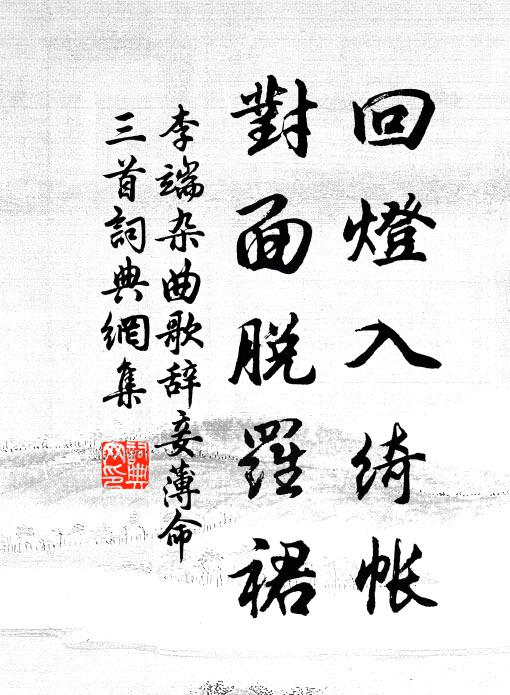 回燈入綺帐
對面脫羅裙
李端杂曲歌辞妾薄命
三首詞典網集